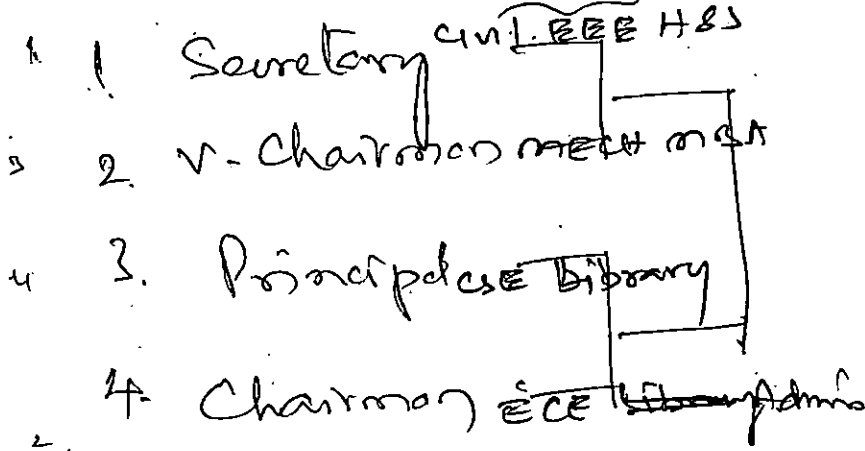 1. 1. Secretary Civil. EEE H&S
3 2. V-Chairman MECH MBA
4 3. Principal CSE Library
4. Chairman ECE Admin
2.